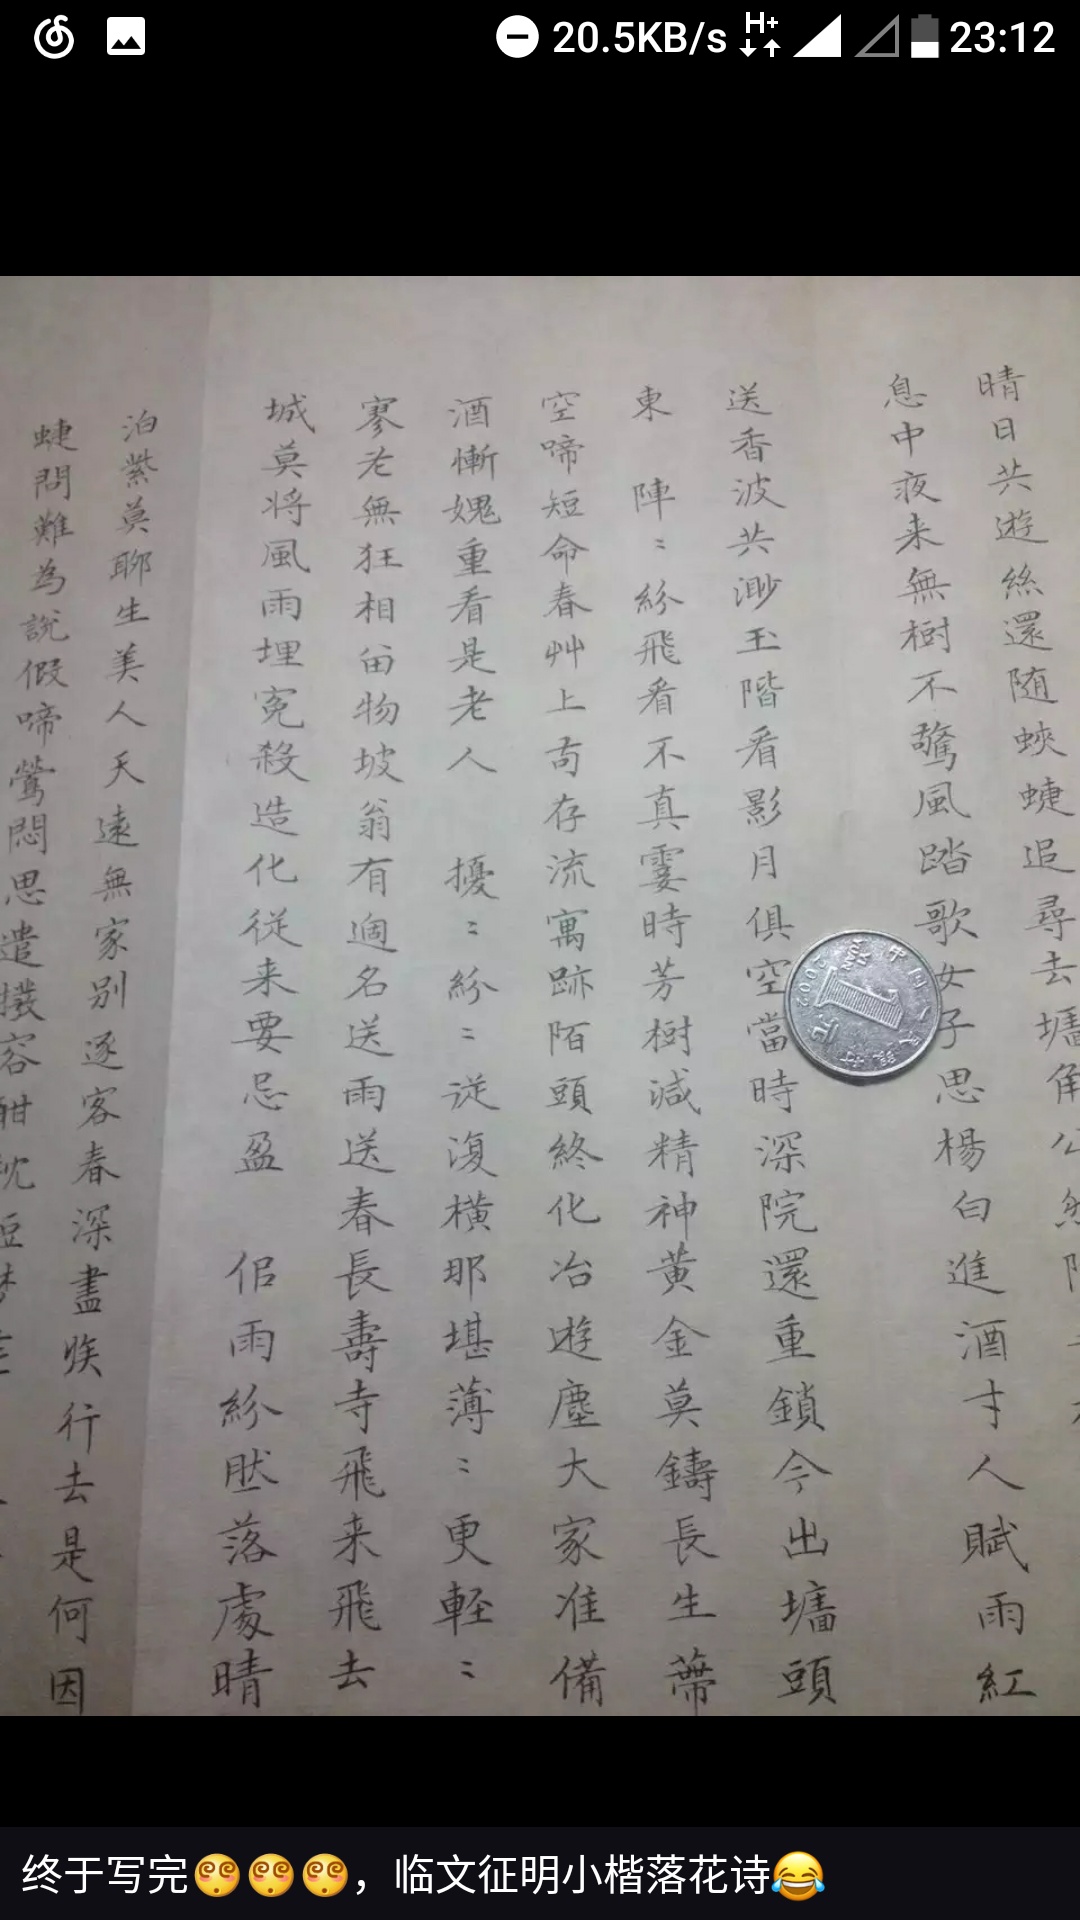 20.5KB/s H+ 23:12
晴日共遊絲還随蛺蜨追尋去墻角公然
息中夜来無樹不驚風踏歌女子思楊白進酒才人賦雨紅
送香波共渺玉階看影月俱空當時深院還重鎖今出墻頭
東 陣〻紛飛看不真霎時芳樹減精神黄金莫鑄長生蒂
空啼短命春艸上苟存流寓跡陌頭終化冶遊塵大家准備
酒慚媿重看是老人 擾〻紛〻従復横那堪薄〻更輕〻
寥老無狂相留物坡翁有過名送雨送春長壽寺飛来飛去
城莫将風雨埋寃殺造化従来要忌盈 佀雨紛肰落處晴
泊紫莫聊生美人天遠無家別逐客春深盡族行去是何因
蜨問難為說假啼鶯悶思遣撥容酣枕短梦
1 元 中国 2002
终于写完😵😵😵，临文征明小楷落花诗😂